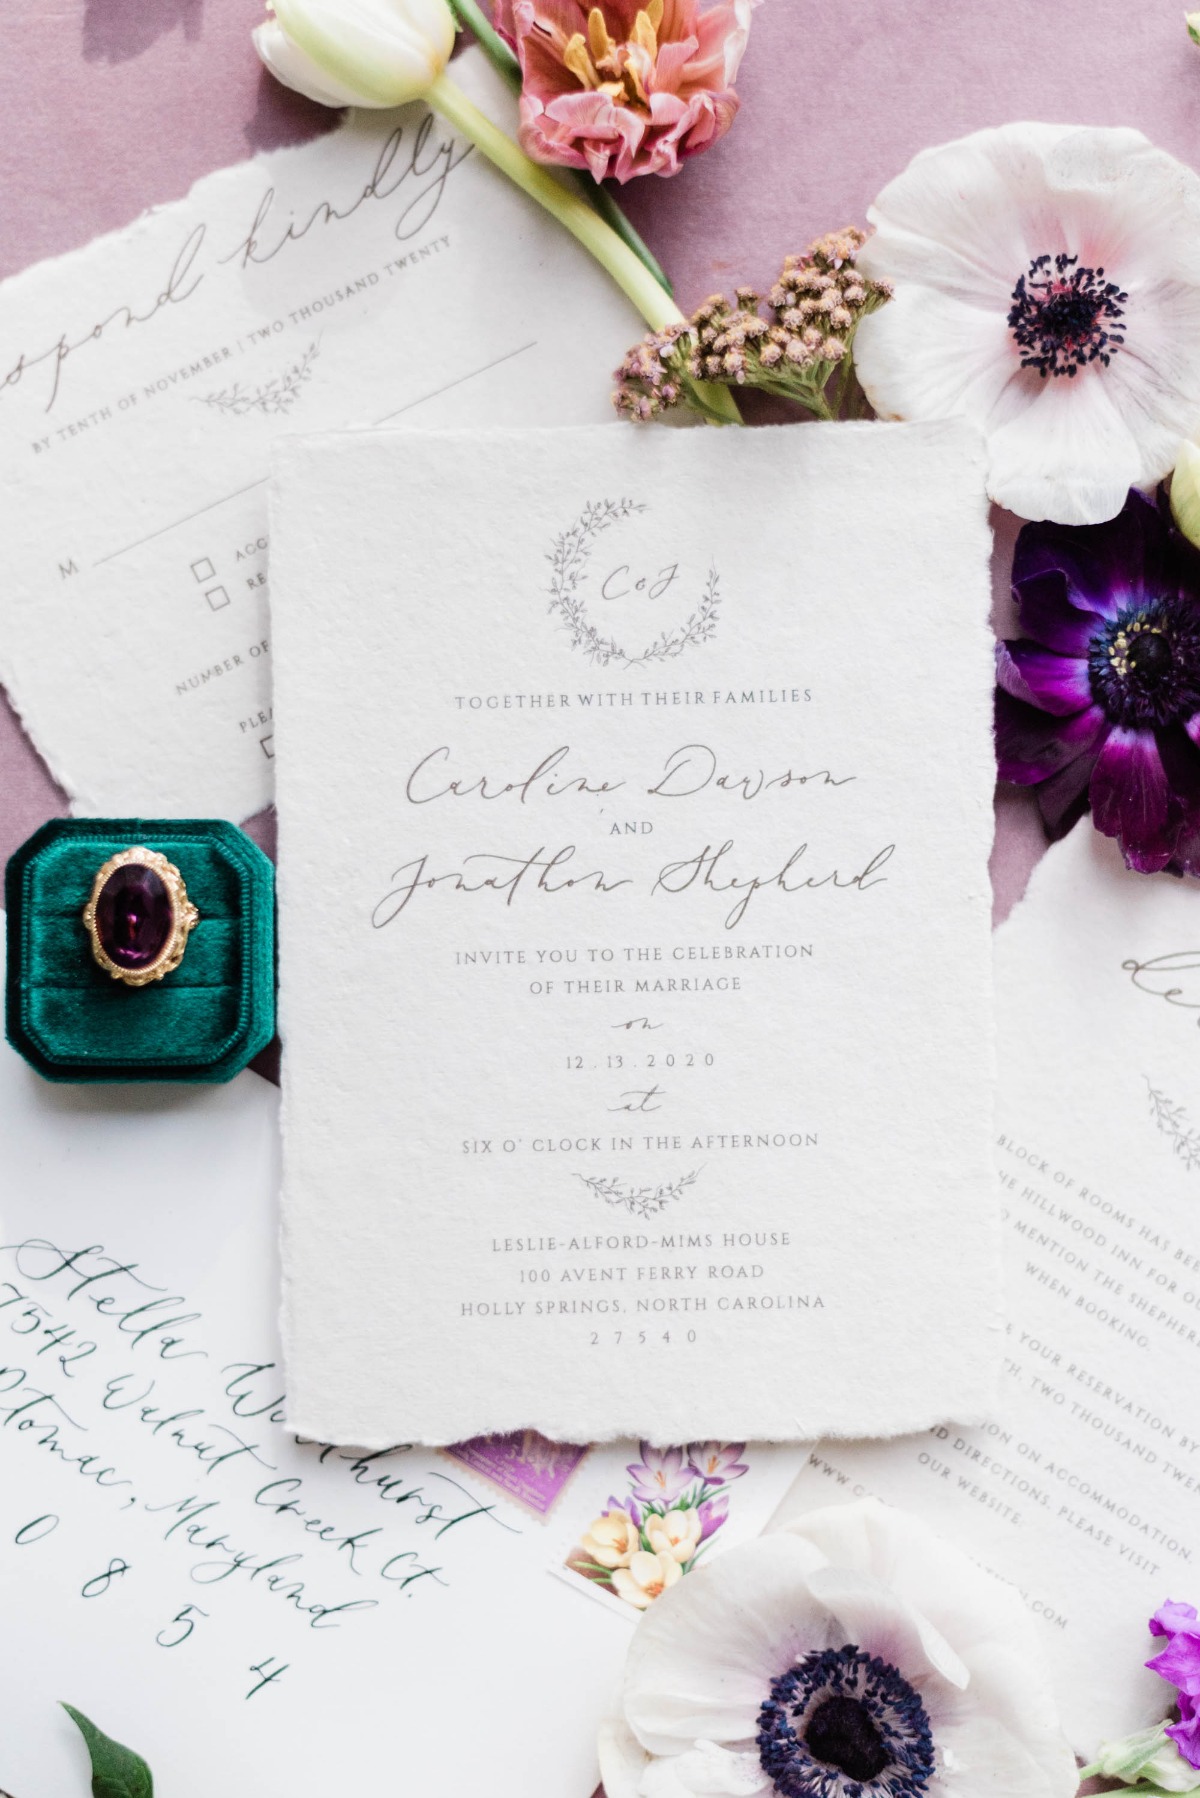 spond kindly
BY TENTH OF NOVEMBER | TWO THOUSAND TWENTY
M
ACC
RE
NUMBER OF
PLEA
C & J
TOGETHER WITH THEIR FAMILIES
Caroline Dawson
AND
Jonathon Shepherd
INVITE YOU TO THE CELEBRATION
OF THEIR MARRIAGE
on
12.13.2020
at
SIX O' CLOCK IN THE AFTERNOON
LESLIE-ALFORD-MIMS HOUSE
100 AVENT FERRY ROAD
HOLLY SPRINGS, NORTH CAROLINA
27540
BLOCK OF ROOMS HAS BEE
HE HILLWOOD INN FOR O
MENTION THE SHEPHER
WHEN BOOKING.
YOUR RESERVATION BY
TH, TWO THOUSAND TWE
ION ON ACCOMMODATION
D DIRECTIONS, PLEASE VISIT
OUR WEBSITE.
WWW.C
.COM
Stella
7542 Walnut Creek Ct.
otomac, Maryland
0 8 5 4